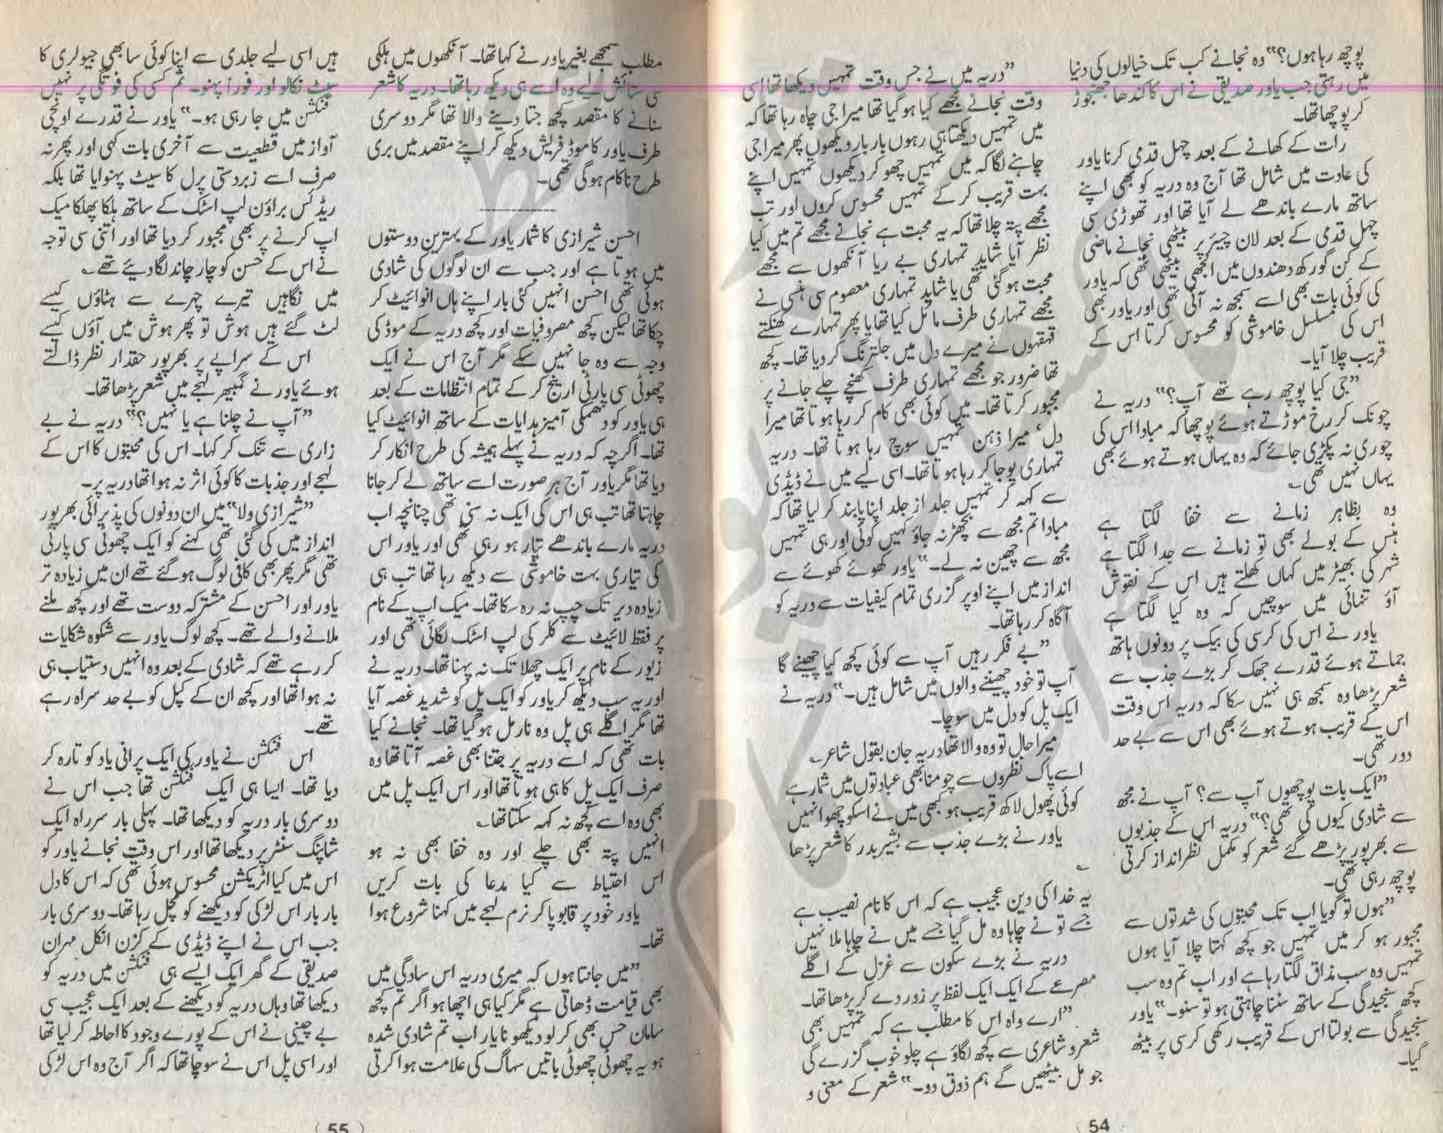 پوچھ رہا ہوں؟“ وہ نجانے کب تک خیالوں کی دنیا
میں رہتی جب یاور صدیقی نے اس کا کندھا جھنجوڑ
کر پوچھا تھا۔
رات کے کھانے کے بعد چہل قدمی کرنا یاور
کی عادت میں شامل تھا آج وہ دریہ کو بھی اپنے
ساتھ مارے باندھے لے آیا تھا اور تھوڑی سی
چہل قدمی کے بعد لان چیئر پر بیٹھی نجانے ماضی
کے کن گورکھ دھندوں میں الجھی بیٹھی تھی کہ یاور
کی کوئی بات بھی اسے سمجھ نہ آئی تھی اور یاور بھی
اس کی مسلسل خاموشی کو محسوس کرتا اس کے
قریب چلا آیا۔
”جی کیا پوچھ رہے تھے آپ؟“ دریہ نے
چونک کر رخ موڑتے ہوئے پوچھا کہ مبادا اس کی
چوری نہ پکڑی جائے کہ وہ یہاں ہوتے ہوئے بھی
یہاں نہیں تھی۔
وہ بظاہر زمانے سے خفا لگتا ہے
ہنس کے بولے بھی تو زمانے سے جدا لگتا ہے
شہر کی بھیڑ میں کہاں کھلتے ہیں اس کے نقوش
آؤ تنہائی میں سوچیں کہ وہ کیا لگتا ہے
یاور نے اس کی کرسی کی بیک پر دونوں ہاتھ
جماتے ہوئے قدرے جھک کر بڑے جذب سے
شعر پڑھا وہ سمجھ ہی نہیں سکا کہ دریہ اس وقت
اس کے قریب ہوتے ہوئے بھی اس سے بے حد
دور تھی۔
”ایک بات پوچھوں آپ سے؟ آپ نے مجھ
سے شادی کیوں کی تھی؟“ دریہ اس کے جذبوں
سے بھرپور پڑھے گئے شعر کو مکمل نظر انداز کرتی
پوچھ رہی تھی۔
”ہوں تو گویا اب تک محبتوں کی شدتوں سے
مجبور ہو کر میں تمہیں جو کچھ کہتا چلا آیا ہوں
تمہیں وہ سب مذاق لگتا رہا ہے اور اب تم وہ سب
کچھ سنجیدگی کے ساتھ سننا چاہتی ہو تو سنو۔“ یاور
سنجیدگی سے بولتا اس کے قریب رکھی کرسی پر بیٹھ
گیا۔
”دریہ میں نے جس وقت تمہیں دیکھا تھا اسی
وقت نجانے مجھے کیا ہو گیا تھا میرا جی چاہ رہا تھا کہ
میں تمہیں دیکھتا ہی رہوں بار بار دیکھوں پھر میرا جی
چاہنے لگا کہ میں تمہیں چھو کر دیکھوں تمہیں اپنے
بہت قریب کر کے تمہیں محسوس کروں اور تب
مجھے پتہ چلا تھا کہ یہ محبت ہے نجانے مجھے تم میں کیا
نظر آیا شاید تمہاری بے ریا آنکھوں سے مجھے
محبت ہو گئی تھی یا شاید تمہاری معصوم سی ہنسی نے
مجھے تمہاری طرف مائل کیا تھا یا پھر تمہارے کھنکتے
قہقہوں نے میرے دل میں جلترنگ کر دیا تھا۔ کچھ
تھا ضرور جو مجھے تمہاری طرف کھنچے چلے جانے پر
مجبور کرتا تھا۔ میں کوئی بھی کام کر رہا ہوتا تھا میرا
دل‘ میرا ذہن تمہیں سوچ رہا ہوتا تھا۔ دریہ
تمہاری پوجا کر رہا ہوتا تھا۔ اسی لیے میں نے ڈیڈی
سے کہہ کر تمہیں جلد از جلد اپنا پابند کر لیا تھا کہ
مبادا تم مجھ سے بچھڑ نہ جاؤ کہیں کوئی اور ہی تمہیں
مجھ سے چھین نہ لے۔“ یاور کھوئے کھوئے سے
انداز میں اپنے اوپر گزری تمام کیفیات سے دریہ کو
آگاہ کر رہا تھا۔
”بے فکر رہیں آپ سے کوئی کچھ کیا چھینے گا
آپ تو خود چھیننے والوں میں شامل ہیں۔“ دریہ نے
ایک پل کو دل میں سوچا۔
میرا حال تو وہ والا تھا دریہ جان بقول شاعر۔
اسے پاک نظروں سے چومنا بھی عبادتوں میں شمار ہے
کوئی پھول لاکھ قریب ہو کبھی میں نے اسکو چھوا نہیں
یاور نے بڑے جذب سے بشیر بدر کا شعر پڑھا
یہ خدا کی دین عجیب ہے کہ اس کا نام نصیب ہے
جسے تو نے چاہا وہ مل گیا جسے میں نے چاہا ملا نہیں
دریہ نے بڑے سکون سے غزل کے اگلے
مصرعے کے ایک ایک لفظ پر زور دے کر پڑھا تھا۔
”ارے واہ اس کا مطلب ہے کہ تمہیں بھی
شعر و شاعری سے کچھ لگاؤ ہے چلو خوب گزرے گی
جو مل بیٹھیں گے ہم ذوق دو۔“ شعر کے معنی و
54
مطلب سمجھے بغیر یاور نے کہا تھا۔ آنکھوں میں ہلکی
سی ستائش لے وہ اسے ہی دیکھ رہا تھا۔ دریہ کا شعر
سنانے کا مقصد کچھ جتا دینے والا تھا مگر دوسری
طرف یاور کا موڈ فریش دیکھ کر اپنے مقصد میں بری
طرح ناکام ہو گئی تھی۔
احسن شیرازی کا شمار یاور کے بہترین دوستوں
میں ہوتا ہے اور جب سے ان لوگوں کی شادی
ہوئی تھی احسن انہیں کئی بار اپنے ہاں انوائیٹ کر
چکا تھا لیکن کچھ مصروفیات اور کچھ دریہ کے موڈ کی
وجہ سے وہ جا نہیں سکے مگر آج اس نے ایک
چھوٹی سی پارٹی ارینج کر کے تمام انتظامات کے بعد
ہی یاور کو دھمکی آمیز ہدایات کے ساتھ انوائیٹ کیا
تھا۔ اگرچہ کہ دریہ نے پہلے ہمیشہ کی طرح انکار کر
دیا تھا مگر یاور آج ہر صورت اسے ساتھ لے کر جانا
چاہتا تھا تب ہی اس کی ایک نہ سنی تھی چنانچہ اب
دریہ مارے باندھے تیار ہو رہی تھی اور یاور اس
کی تیاری بہت خاموشی سے دیکھ رہا تھا تب ہی
زیادہ دیر تک چپ نہ رہ سکا تھا۔ میک اپ کے نام
پر فقط لائیٹ سے کلر کی لپ اسٹک لگائی تھی اور
زیور کے نام پر ایک چھلا تک نہ پہنا تھا۔ دریہ نے
اور یہ سب دیکھ کر یاور کو ایک پل کو شدید غصہ آیا
تھا مگر اگلے ہی پل وہ نارمل ہو گیا تھا۔ نجانے کیا
بات تھی کہ اسے دریہ پر جتنا بھی غصہ آتا تھا وہ
صرف ایک پل کا ہی ہوتا تھا اور اس ایک پل میں
بھی وہ اسے کچھ نہ کہہ سکتا تھا۔
انہیں پتہ بھی چلے اور وہ خفا بھی نہ ہو
اس احتیاط سے کیا مدعا کی بات کریں
یاور خود پر قابو پا کر نرم لہجے میں کہنا شروع ہوا
تھا۔
”میں جانتا ہوں کہ میری دریہ اس سادگی میں
بھی قیامت ڈھاتی ہے مگر کیا ہی اچھا ہو اگر تم کچھ
سامان حسن بھی کر لو دیکھو نا یار اب تم شادی شدہ
ہو یہ چھوٹی چھوٹی باتیں سہاگ کی علامت ہوا کرتی
ہیں اسی لیے جلدی سے اپنا کوئی سا بھی جیولری کا
سیٹ نکالو اور فوراً پہنو۔ تم کسی کی فوتگی پر نہیں
فنکشن میں جا رہی ہو۔“ یاور نے قدرے اونچی
آواز میں قطعیت سے آخری بات کہی اور پھر نہ
صرف اسے زبردستی پرل کا سیٹ پہنوایا تھا بلکہ
ریڈش براؤن لپ اسٹک کے ساتھ ہلکا پھلکا میک
اپ کرنے پر بھی مجبور کر دیا تھا اور اتنی سی توجہ
نے اس کے حسن کو چار چاند لگا دیئے تھے۔
میں نگاہیں تیرے چہرے سے ہٹاؤں کیسے
لٹ گئے ہیں ہوش تو پھر ہوش میں آؤں کیسے
اس کے سراپے پر بھرپور حقدار نظر ڈالتے
ہوئے یاور نے گمبھیر لہجے میں شعر پڑھا تھا۔
”آپ نے چلنا ہے یا نہیں؟“ دریہ نے بے
زاری سے تنک کر کہا۔ اس کی محبتوں کا اس کے
لہجے اور جذبات کا کوئی اثر نہ ہوا تھا دریہ پر۔
”شیرازی ولا“ میں ان دونوں کی پذیرائی بھرپور
انداز میں کی گئی تھی کہنے کو ایک چھوٹی سی پارٹی
تھی مگر پھر بھی کافی لوگ ہو گئے تھے ان میں زیادہ تر
یاور اور احسن کے مشترکہ دوست تھے اور کچھ ملنے
ملانے والے تھے۔ کچھ لوگ یاور سے شکوہ شکایات
کر رہے تھے کہ شادی کے بعد وہ انہیں دستیاب ہی
نہ ہوا تھا اور کچھ ان کے کپل کو بے حد سراہ رہے
تھے۔
اس فنکشن نے یاور کی ایک پرانی یاد کو تازہ کر
دیا تھا۔ ایسا ہی ایک فنکشن تھا جب اس نے
دوسری بار دریہ کو دیکھا تھا۔ پہلی بار سر راہ ایک
شاپنگ سنٹر پر دیکھا تھا اور اس وقت نجانے یاور کو
اس میں کیا اٹریکشن محسوس ہوئی تھی کہ اس کا دل
بار بار اس لڑکی کو دیکھنے کو مچل رہا تھا۔ دوسری بار
جب اس نے اپنے ڈیڈی کے کزن انکل مہران
صدیقی کے گھر ایک ایسے ہی فنکشن میں دریہ کو
دیکھا تھا وہاں دریہ کو دیکھنے کے بعد ایک عجیب سی
بے چینی نے اس کے پورے وجود کا احاطہ کر لیا تھا
اور اسی پل اس نے سوچا تھا کہ اگر آج وہ اس لڑکی
55